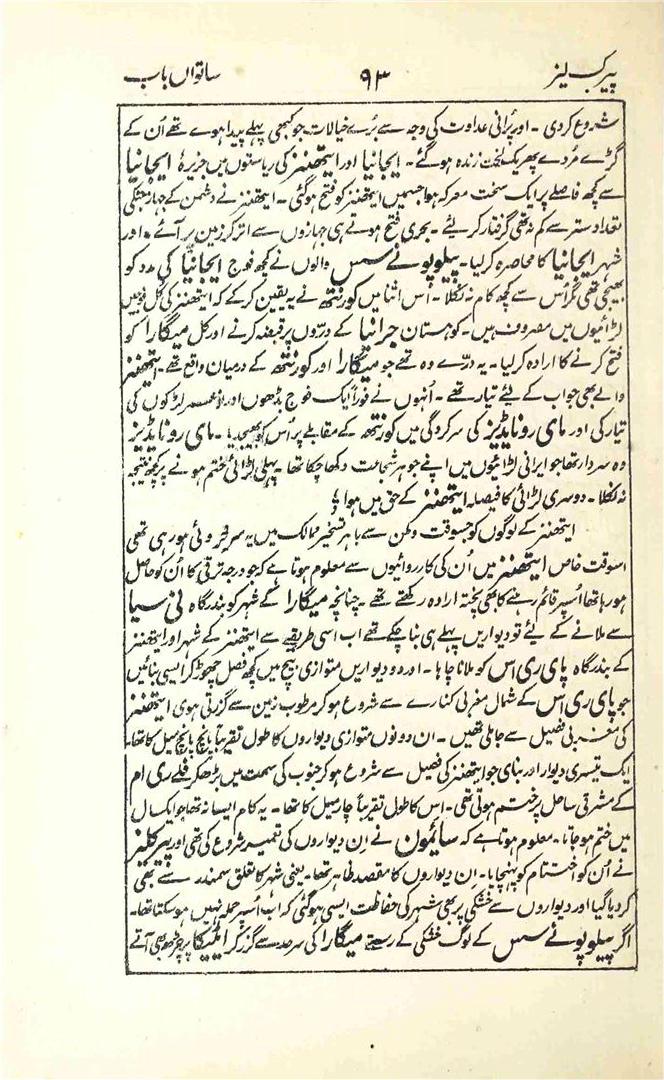 پیرکلیز ۹۳ ساتواں باب
شروع کردی ۔ اور پُرانی عداوت کی وجہ سے بُرے خیالات جو کبھی پہلے پیدا ہوے تھے اُن کے
گڑے مُردے پھر یک لخت زندہ ہوگئے ۔ ایجانیا اور ایتھنز کی ریاستوں میں جزیرۂ ایجانیا
سے کچھ فاصلے پر ایک سخت معرکہ ہوا جسمیں ایتھنز کو فتح ہوگئی ۔ ایتھنز نے دشمن کے جہاز جنکی
تعداد ستر سے کم نہ تھی گرفتار کرلیے ۔ بحری فتح ہوتے ہی جہازوں سے اترکر زمین پر آئے ۔ اور
شہر ایجانیا کا محاصرہ کرلیا ۔ پیلوپونے سس والوں نے کچھ فوج ایجانیا کی مدد کو
بھیجی تھی مگر اُس سے کچھ کام نہ نکلا ۔ اس اثنا میں کورنتھ نے یہ یقین کرکے کہ ایتھنز کی کل فوجیں
لڑائیوں میں مصروف ہیں ۔ کوہستان جرانیا کے درّوں پر قبضہ کرنے اور کل میگارا کو
فتح کرنے کا ارادہ کرلیا ۔ یہ درّے وہ تھے جو میگارا اور کورنتھ کے درمیان واقع تھے ۔ ایتھنز
والے بھی جواب کے لیے تیار تھے ۔ اُنہوں نے فوراً ایک فوج بڈھوں اور نوعمر لڑکوں کی
تیار کی اور مای رونایڈیز کی سرکردگی میں کورنتھ کے مقابلے پر اُس کو بھیجدیا ۔ مای رونایڈیز
وہ سردار تھا جو ایرانی لڑائیوں میں اپنے جوہر شجاعت دکھا چکا تھا پہلی لڑائی ختم ہونے پر کچھ نتیجہ
نہ نکلا ۔ دوسری لڑائی کا فیصلہ ایتھنز کے حق میں ہوا ؛
ایتھنز کے لوگوں کو جسوقت وطن سے باہر تسخیر ممالک میں یہ سرخروئی ہورہی تھی
اسوقت خاص ایتھنز میں اُن کی کارروائیوں سے معلوم ہوتا ہے کہ جو درجہ ترقی کا اُن کو حاصل
ہورہا تھا اُسپر قائم رہنے کا بھی پختہ ارادہ رکھتے تھے ۔ چنانچہ میگارا کے شہر کو بندرگاہ نی سیا
سے ملانے کے لیے تو دیواریں پہلے ہی بنا چکے تھے اب اسی طریقے سے ایتھنز کے شہر اور ایتھنز
کے بندرگاہ پای ری اس کو ملانا چاہا ۔ اور دو دیواریں متوازی بیچ میں کچھ فصل چھوڑ کر ایسی بنائیں
جو پای ری اس کے شمال مغربی کنارے سے شروع ہوکر مرطوب زمین سے گزرتی ہوی ایتھنز
کی مغربی فصیل سے جا ملی تھیں ۔ ان دونوں متوازی دیواروں کا طول تقریباً پانچ پانچ میل کا تھا ۔
ایک تیسری دیوار اور بنای جو ایتھنز کی فصیل سے شروع ہوکر جنوب کی سمت میں بڑھکر فلے ری ام
کے مشرقی ساحل پر ختم ہوتی تھی ۔ اس کا طول تقریباً چار میل کا تھا ۔ یہ کام ایسا نہ تھا جو ایک سال
میں ختم ہوجاتا ۔ معلوم ہوتا ہے کہ سائمون نے اِن دیواروں کی تعمیر شروع کی تھی اور پیرکلیز
نے اُن کو اختتام کو پہنچایا ۔ اِن دیواروں کا مقصد ظاہر تھا ۔ یعنی شہر کا تعلق سمندر سے بھی
کردیا گیا اور دیواروں سے خشکی پر بھی شہر کی حفاظت ایسی ہوگئی کہ اب اُسپر حملہ نہیں ہوسکتا تھا ۔
اگر پیلوپونے سس کے لوگ خشکی کے رستے میگارا کی سرحد سے گزر کر ایٹیکا پر چڑھ بھی آتے